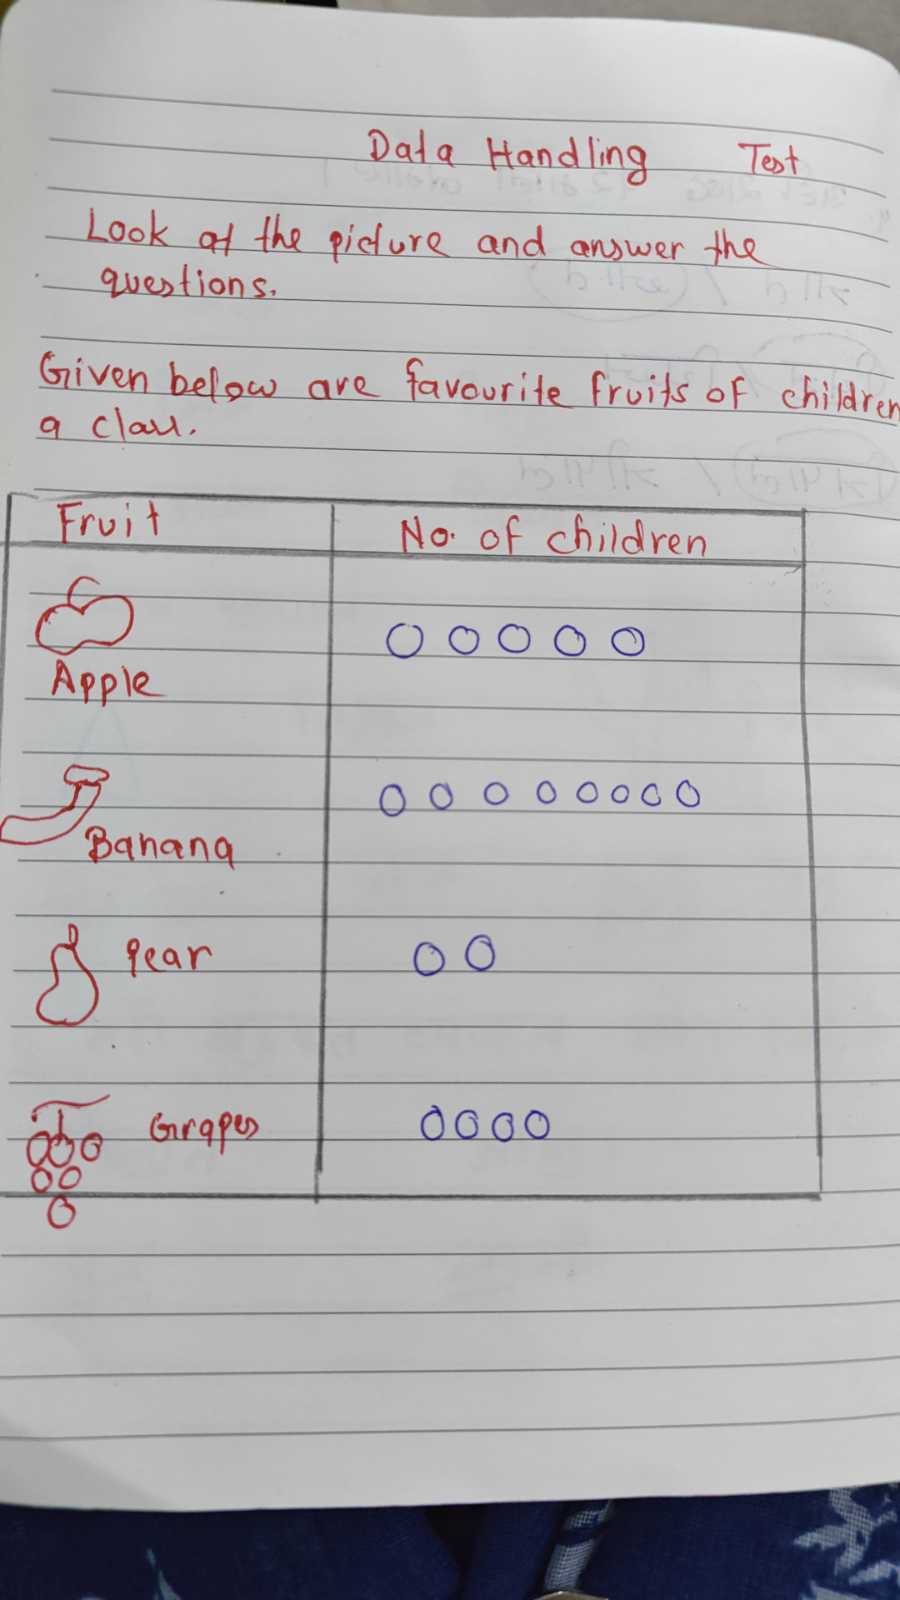 Data Handling Test
Look at the picture and answer the
questions.
Given below are favourite fruits of children
a class.
Fruit No. of children
Apple
Banana
Pear
Grapes